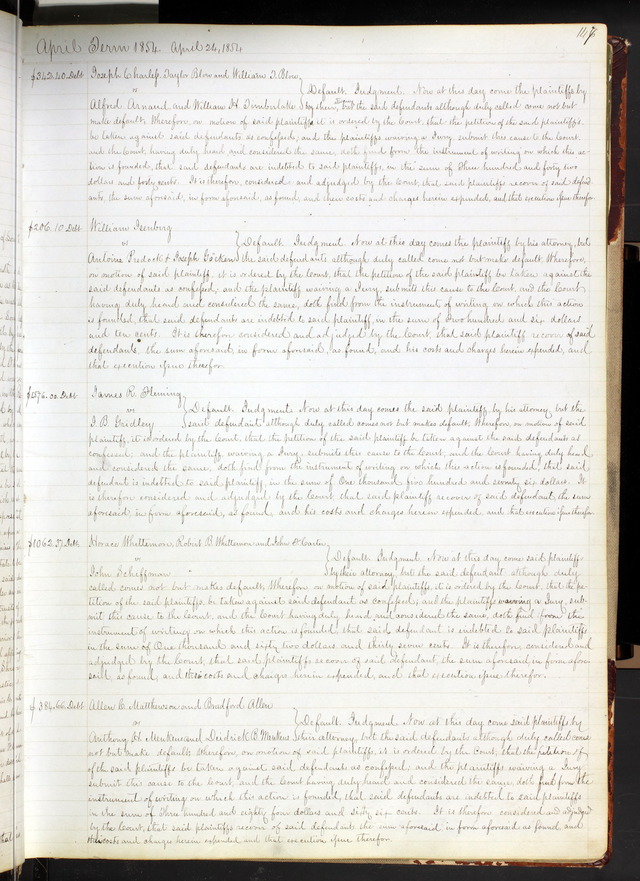 147
April Term 1854 April 24, 1854
$342.40 Debt Joseph Charless, Taylor Blow and William T. Blow
vs } Default. Judgment. Now at this day come the plaintiffs by
Alfred Arnaud and William H. Timberlake their but the said defendants although duly called come not but
make default. Wherefore, on motion of said plaintiffs it is ordered by the Court, that the petition of the said plaintiffs,
be taken against said defendants as confessed, and the plaintiffs waiving a Jury, submit this cause to the Court,
and the Court, having duly heard and considered the same, doth find from the instrument of writing on which this ac-
tion is founded, that said defendants are indebted to said plaintiffs, in the sum of Three hundred and forty two
dollars and forty cents. It is therefore, considered and adjudged by the Court, that said plaintiffs recover of said defend-
ants, the sum aforesaid, in form aforesaid, as found, and their costs and charges herein expended, and that execution issue therefor
$206.10 Debt William Isenburg
vs } Default. Judgment. Now at this day comes the plaintiff by his attorney, but
Antoine and Joseph the said defendants although duly called come not but make default. Wherefore,
on motion of said plaintiff, it is ordered by the Court, that the petition of the said plaintiff be taken against the
said defendants as confessed, and the plaintiff waiving a Jury, submits this cause to the Court, and the Court
having duly heard and considered the same, doth find from the instrument of writing on which this action
is founded, that said defendants are indebted to said plaintiff in the sum of Two hundred and six dollars
and ten cents. It is therefore considered and adjudged by the Court, that said plaintiff recover of said
defendants, the sum aforesaid, in form aforesaid, as found, and his costs and charges herein expended, and
that execution issue therefor.
$1576.00 Debt James R. Fleming
vs } Default. Judgment. Now at this day comes the said plaintiff, by his attorney, but the
J. B. Gridley said defendant although duly called comes not but makes default. Wherefore, on motion of said
plaintiff, it is ordered by the Court, that the petition of the said plaintiff be taken against the said defendant as
confessed, and the plaintiff waiving a Jury, submits this cause to the Court, and the Court having duly heard
and considered the same, doth find from the instrument of writing on which this action is founded, that said
defendant is indebted to said plaintiff, in the sum of One thousand five hundred and seventy six dollars. It
is therefore considered and adjudged by the Court that said plaintiff recover of said defendant, the sum
aforesaid, in form aforesaid, as found, and his costs and charges herein expended, and that execution issue therefor
$1062.37 Debt Horace Whittemore, Robert B. Whittemore and John
vs } Default. Judgment. Now at this day come said plaintiffs
John Schiffman by their attorney, but the said defendant although duly
called comes not but makes default, Wherefore on motion of said plaintiffs, it is ordered by the Court, that the pe-
tition of the said plaintiffs, be taken against said defendant as confessed, and the plaintiffs waiving a Jury, sub-
mit this cause to the Court, and the Court having duly heard and considered the same, doth find from the
instrument of writing on which this action is founded, that said defendant is indebted to said plaintiffs
in the sum of One thousand and sixty two dollars and thirty seven cents. It is therefore, considered and
adjudged by the Court, that said plaintiffs recover of said defendant the sum aforesaid in form afore-
said, as found, and their costs and charges herein expended, and that execution issue therefor.
$384.66 Debt Allen C. Matthewson and Bradford Allen
vs } Default. Judgment. Now at this day come said plaintiffs by
Anthony H. Menkens and Deidrick B. Menkens their attorney, but the said defendants although duly called come
not but make default. Wherefore, on motion of said plaintiffs, it is ordered by the Court, that the petition
of the said plaintiffs be taken against said defendants as confessed, and the plaintiffs waiving a Jury
submit this cause to the Court, and the Court having duly heard and considered the same, doth find from the
instrument of writing on which this action is founded, that said defendants are indebted to said plaintiffs
in the sum of Three hundred and eighty four dollars and sixty six cents. It is therefore considered and adjudged
by the Court, that said plaintiffs recover of said defendants the sum aforesaid in form aforesaid as found, and
their costs and charges herein expended and that execution issue therefor.